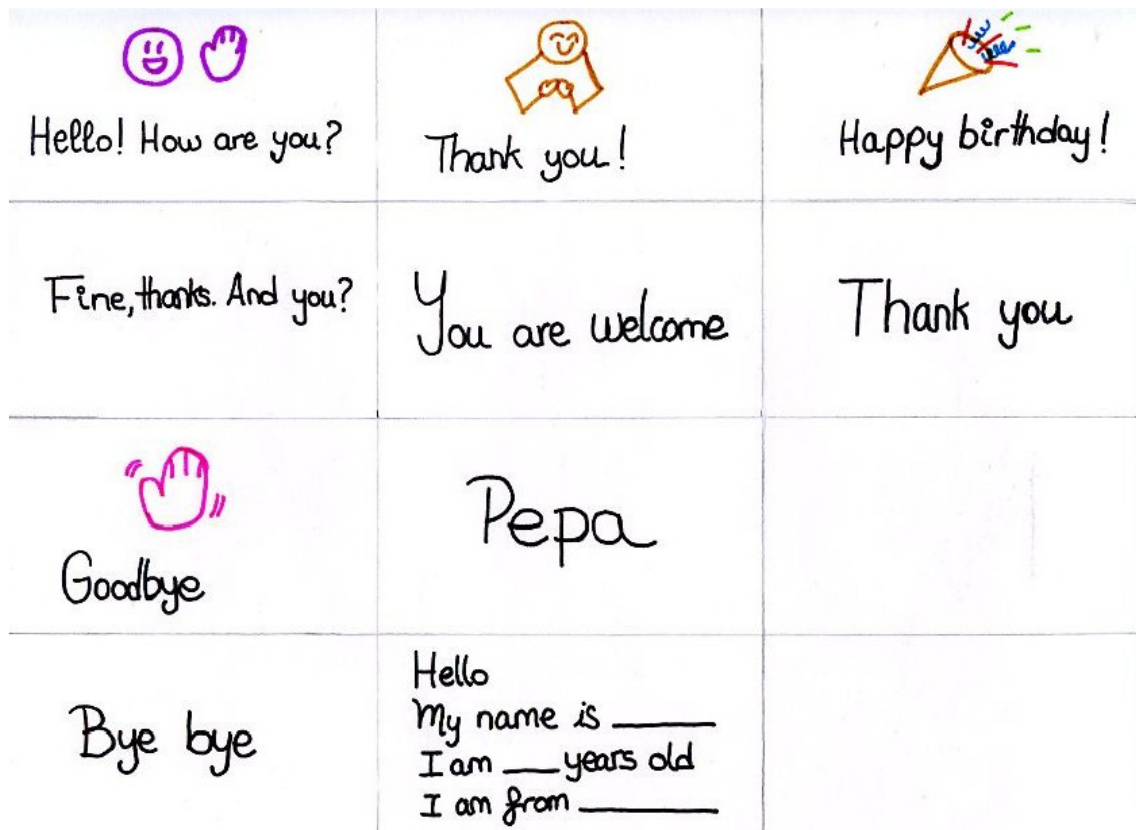 Hello! How are you?
Thank you!
Happy birthday!
Fine, thanks. And you?
You are welcome
Thank you
Goodbye
Pepa
Bye bye
Hello
My name is ______
I am ___ years old
I am from ________